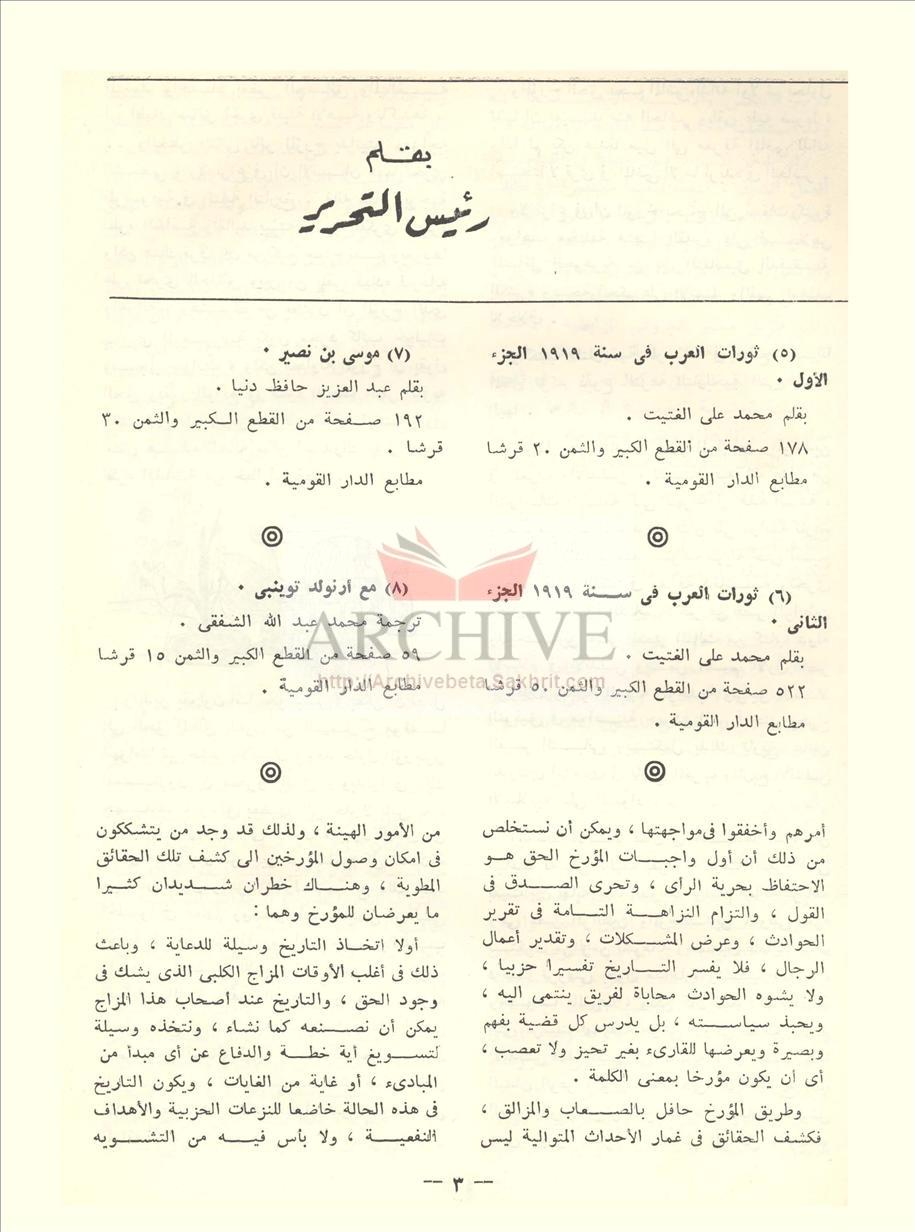 بقـلم
رئيس التحرير
(٥) ثورات العرب فى سنة ١٩١٩ الجزء
الأول .
بقلم محمد على الفتيت .
١٧٨ صفحة من القطع الكبير والثمن ٢٠ قرشا
مطابع الدار القومية .
(٦) ثورات العرب فى ســـنة ١٩١٩ الجزء
الثانى .
بقلم محمد على الفتيت .
٥٢٢ صفحة من القطع الكبير والثمن ٥٠ قرشا
مطابع الدار القومية .
أمرهم وأخفقوا فى مواجهتها ، ويمكن أن نستخلص
من ذلك أن أول واجبـــات المؤرخ الحق هــو
الاحتفاظ بحرية الرأى ، وتحرى الصــــدق فى
القول ، والتزام النزاهـــة التـــامة فى تقرير
الحوادث ، وعرض المشــــكلات ، وتقدير أعمال
الرجال ، فلا يفسر التــــاريخ تفسيرا حزبيا ،
ولا يشوه الحوادث محاباة لفريق ينتمى اليه ،
ويحبذ سياســــته ، بل يدرس كل قضية بفهم
وبصيرة ويعرضها للقارىء بغير تحيز ولا تعصب ،
أى أن يكون مؤرخا بمعنى الكلمة .
وطريق المؤرخ حافل بالصــــعاب والمزالق ،
فكشف الحقائق فى غمار الأحداث المتوالية ليس
(٧) موسى بن نصير .
بقلم عبد العزيز حافظ دنيا .
١٩٢ صــفحة من القطع الـكبير والثمن ٣٠
قرشا .
مطابع الدار القومية .
(٨) مع أرنولد توينبى .
ترجمة محمد عبد الله الشفقى .
٥٩ صفحة من القطع الكبير والثمن ١٥ قرشا
مطابع الدار القومية .
من الأمور الهينة ، ولذلك قد وجد من يتشككون
فى امكان وصول المؤرخين الى كشف تلك الحقائق
المطوية ، وهنـــاك خطران شــــديدان كثــيرا
ما يعرضان للمؤرخ وهما :
أولا اتخـــاذ التاريخ وسيلة للدعاية ، وباعث
ذلك فى أغلب الأوقات المزاج الكلبى الذى يشك فى
وجود الحق ، والتاريخ عند أصحاب هذا المزاج
يمكن أن نصــــنعه كما نشاء ، ونتخذه وسيلة
لتســـويغ أية خطـــة والدفاع عن أى مبدأ من
المبادىء ، أو غاية من الغايات ، ويكون التاريخ
فى هذه الحالة خاضعا للنزعات الحزبية والأهداف
النفعيـــة ، ولا بأس فيـــه من التشـــويه
ARCHIVE
http://Archivebeta.Sakhrit.com
-- ٣ --